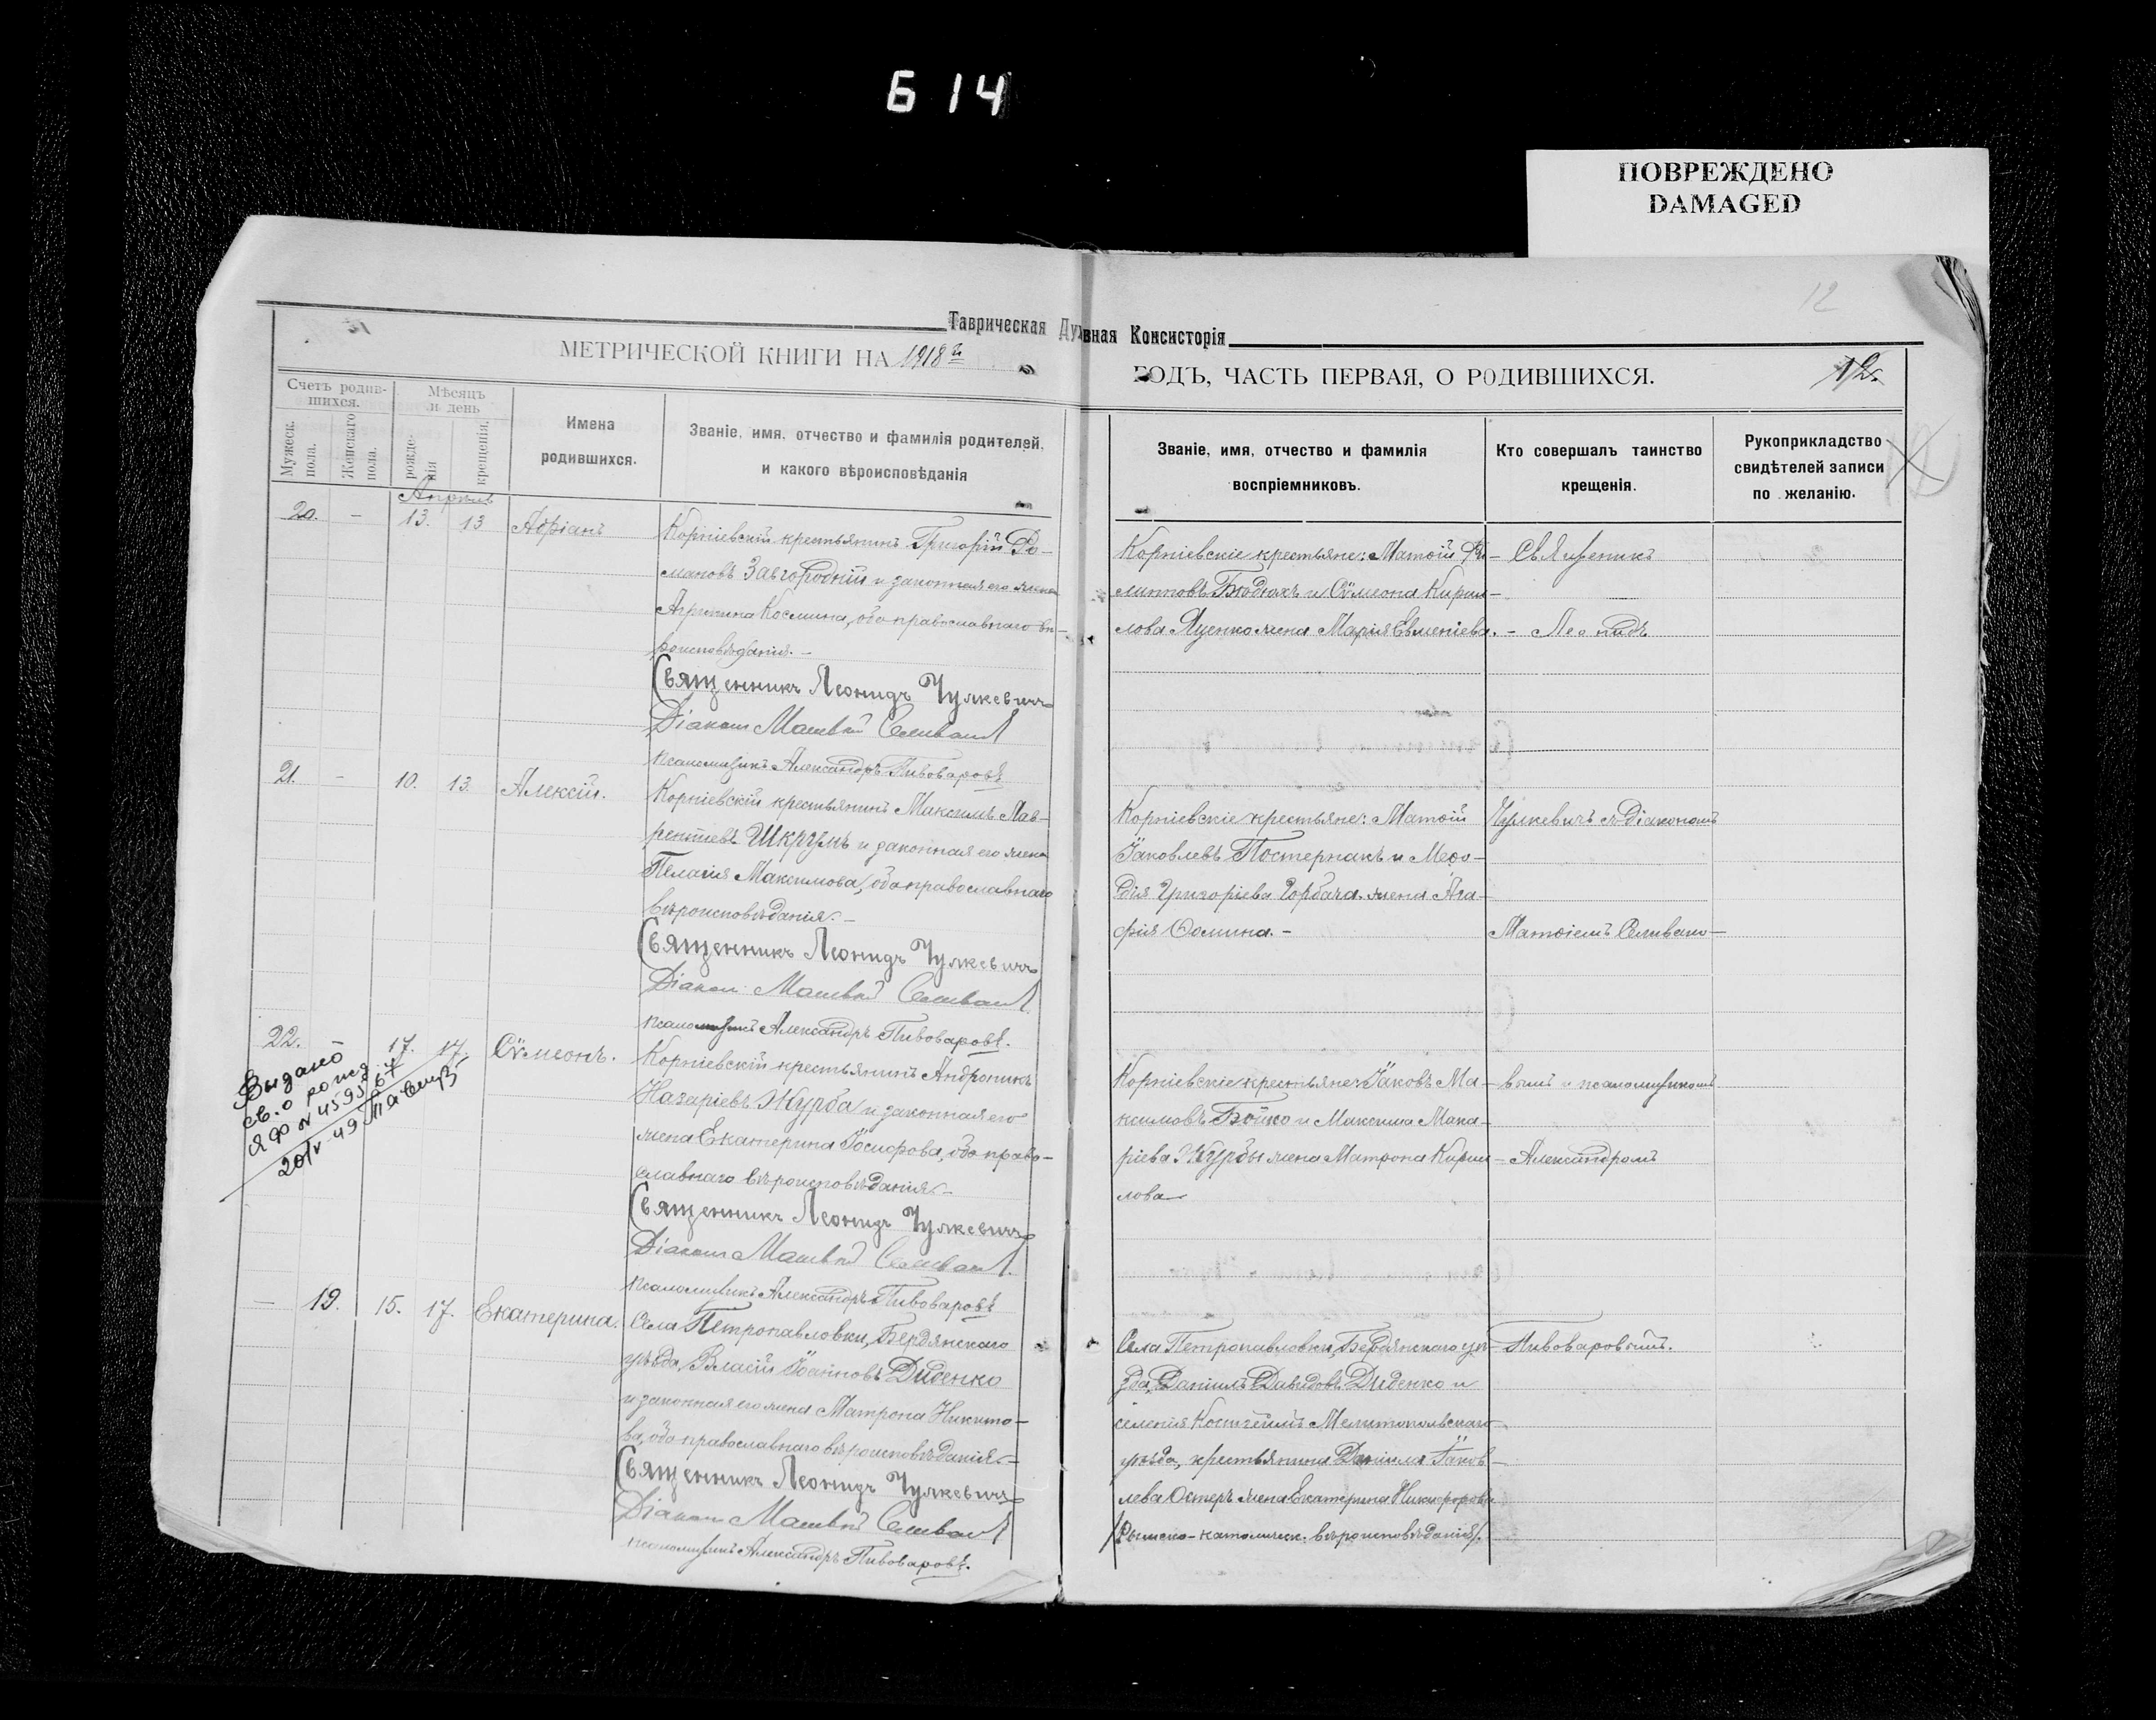 Б 14
ПОВРЕЖДЕНО
DAMAGED
12
Таврическая Духовная Консисторія
МЕТРИЧЕСКОЙ КНИГИ НА 1918 й
ГОДЪ, ЧАСТЬ ПЕРВАЯ, О РОДИВШИХСЯ.
12.
Счетъ родив-
шихся.
Мужеск. пола.
Женскаго пола.
Мѣсяцъ
и день
рожде-
нія
крещенія.
Имена
родившихся.
Званіе, имя, отчество и фамилія родителей,
и какого вѣроисповѣданія
Званіе, имя, отчество и фамилія
воспріемниковъ.
Кто совершалъ таинство
крещенія.
Рукоприкладство
свидѣтелей записи
по желанію.
Апрѣль
20. - 13. 13 Адріанъ
Корніевскій крестьянинъ Григорій Ро-
мановъ Завгородній и законная его жена
Агрипина Космина, оба православнаго вѣ-
роисповѣданія.-
Священникъ Леонидъ Чулкевичъ
Діаконъ Матвѣй Селивановъ
Псаломщикъ Александръ Пивоваровъ
Корніевскіе крестьяне: Матѳій Фи-
липповъ Бюдюкъ и Сѵмеона Кирил-
лова Яценко жена Марія Евменіева.
Священникъ
- Леонидъ
21. - 10. 13. Алексій.
Корніевскій крестьянинъ Максимъ Лав-
рентіевъ Шкрумъ и законная его жена
Пелагія Максимова, оба православнаго
вѣроисповѣданія.-
Священникъ Леонидъ Чулкевичъ
Діаконъ Матвѣй Селивановъ
Псаломщикъ Александръ Пивоваровъ.
Корніевскіе крестьяне: Матѳій
Іаковлевъ Постернакъ и Меѳо-
дія Григоріева Горбача жена Ага-
фія Ѳомина.-
Чулкевичъ съ Діакономъ
Матѳіемъ Селивано-
22. 17. 17. Сѵмеонъ.
Выдано
св. о рожд.
ЯФ № 459567
20/V 49
Корніевскій крестьянинъ Андроникъ
Назаріевъ Журба и законная его
жена Екатерина Іосифова, оба право-
славнаго вѣроисповѣданія.-
Священникъ Леонидъ Чулкевичъ
Діаконъ Матвѣй Селивановъ.
Псаломщикъ Александръ Пивоваровъ
Корніевскіе крестьяне: Іаковъ Ма-
ксимовъ Бойко и Максима Мака-
ріева Журбы жена Матрона Кирил-
лова
вымъ и псаломщикомъ
- Александромъ
- 19. 15. 17. Екатерина.
Села Петропавловки, Бердянскаго
уѣзда, Власій Іоанновъ Диденко
и законная его жена Матрона Никито-
ва, оба православнаго вѣроисповѣданія.-
Священникъ Леонидъ Чулкевичъ
Діаконъ Матвѣй Селивановъ
Псаломщикъ Александръ Пивоваровъ.
Села Петропавловки, Бердянскаго уѣ-
зда, Даніилъ Давидовъ Диденко и
селенія Костгеймъ Мелитопольскаго
уѣзда, крестьянина Даніила Іаков-
лева Остеръ жена Екатерина Никифорова
/Римско-католическ. вѣроисповѣданія/.
Пивоваровымъ.